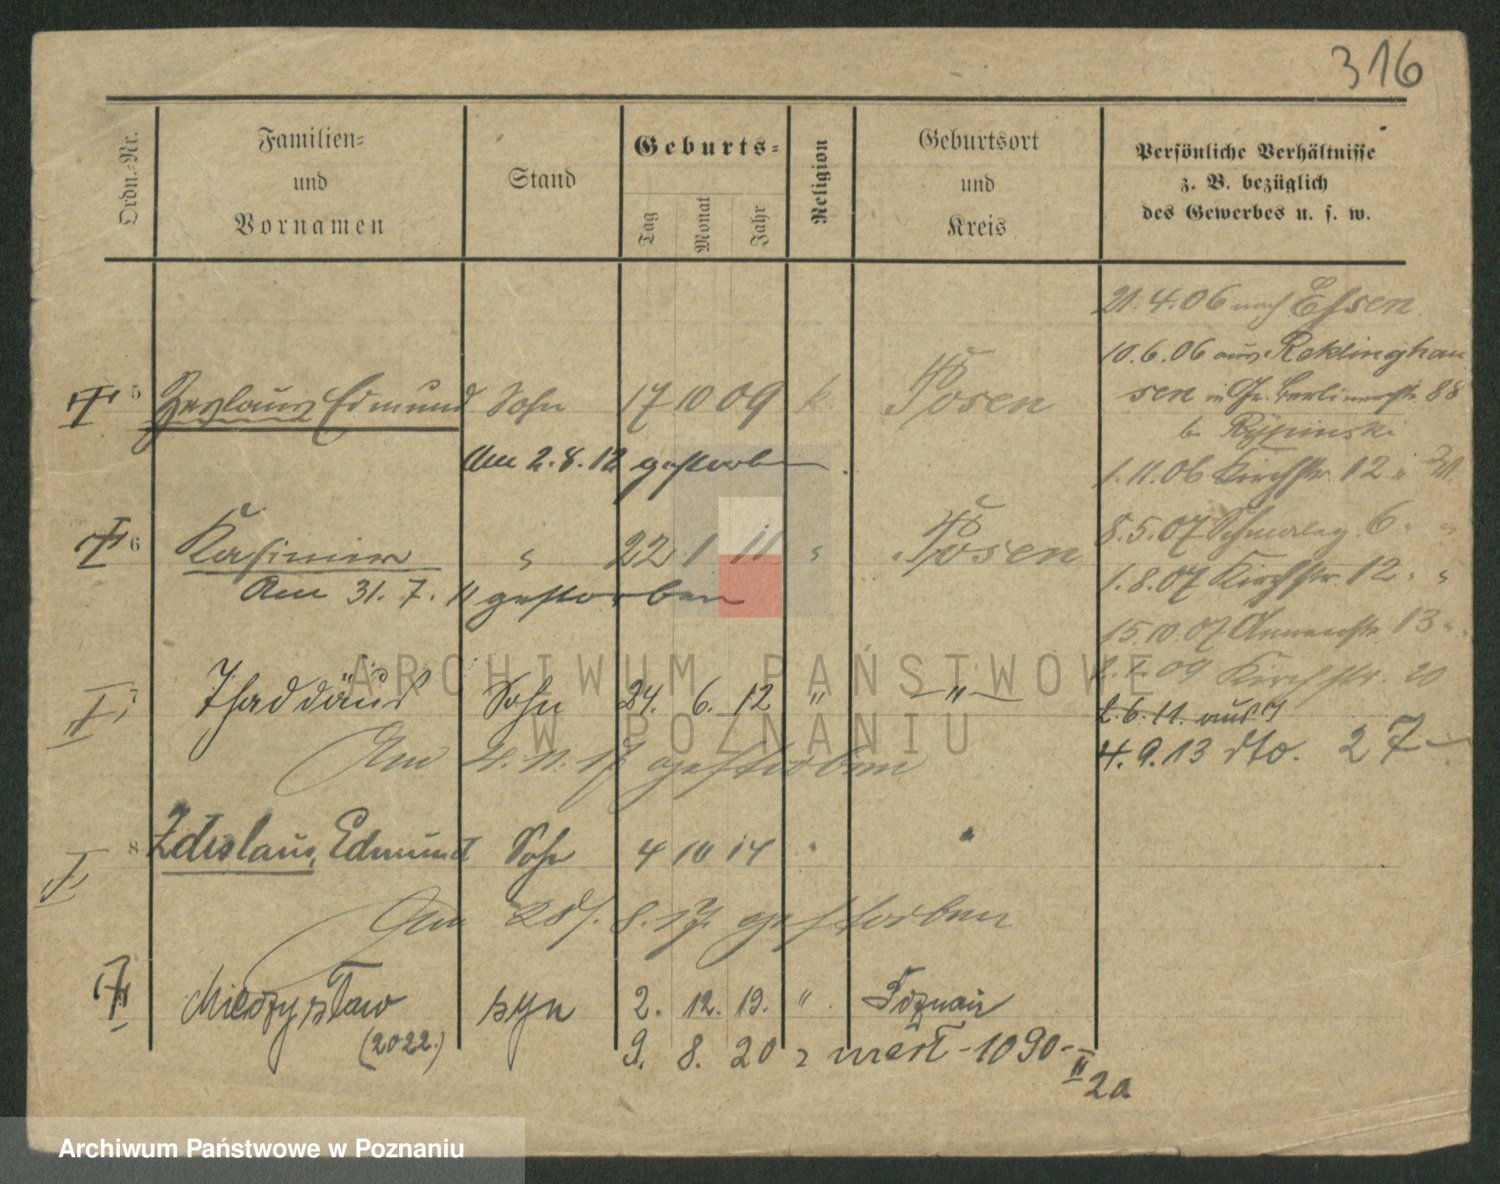 316
Ordn.-Nr.
Familien-
und
Vornamen
Stand
Geburts-
Tag
Monat
Jahr
Religion
Geburtsort
und
Kreis
Persönliche Verhältnisse
z. B. bezüglich
des Gewerbes u. s. w.
21.4.06 nach Essen
10.6.06 aus Reklinghau
sen in Gr. Berlinerstr. 88
b. Rypinski
1.11.06 Kirchstr. 12
8.5.07 6
1.8.07 Kirchstr. 12 " "
15.10.07 Annenstr. 13 "
09 Kirchstr. 20
2.6.11. aus
4.9.13 dto. 27
5 Edmund Sohn 17 10 09 k. Posen
Am 2.8.12 gestorben.
6 Kasimir " 22 1 11 " Posen
Am 31.7.11 gestorben
7 Thaddäus Sohn 24. 6. 12 " — " —
Am gestorben
8 Zdislaus, Edmund Sohn 4 10 14 " "
Am 28. 8. 17. gestorben
Mieczysław syn 2. 12. 19. " Poznań
(2022.)
9. 8. 20 zmarł - 1090 -
II
2a
ARCHIWUM PAŃSTWOWE
W POZNANIU
Archiwum Państwowe w Poznaniu